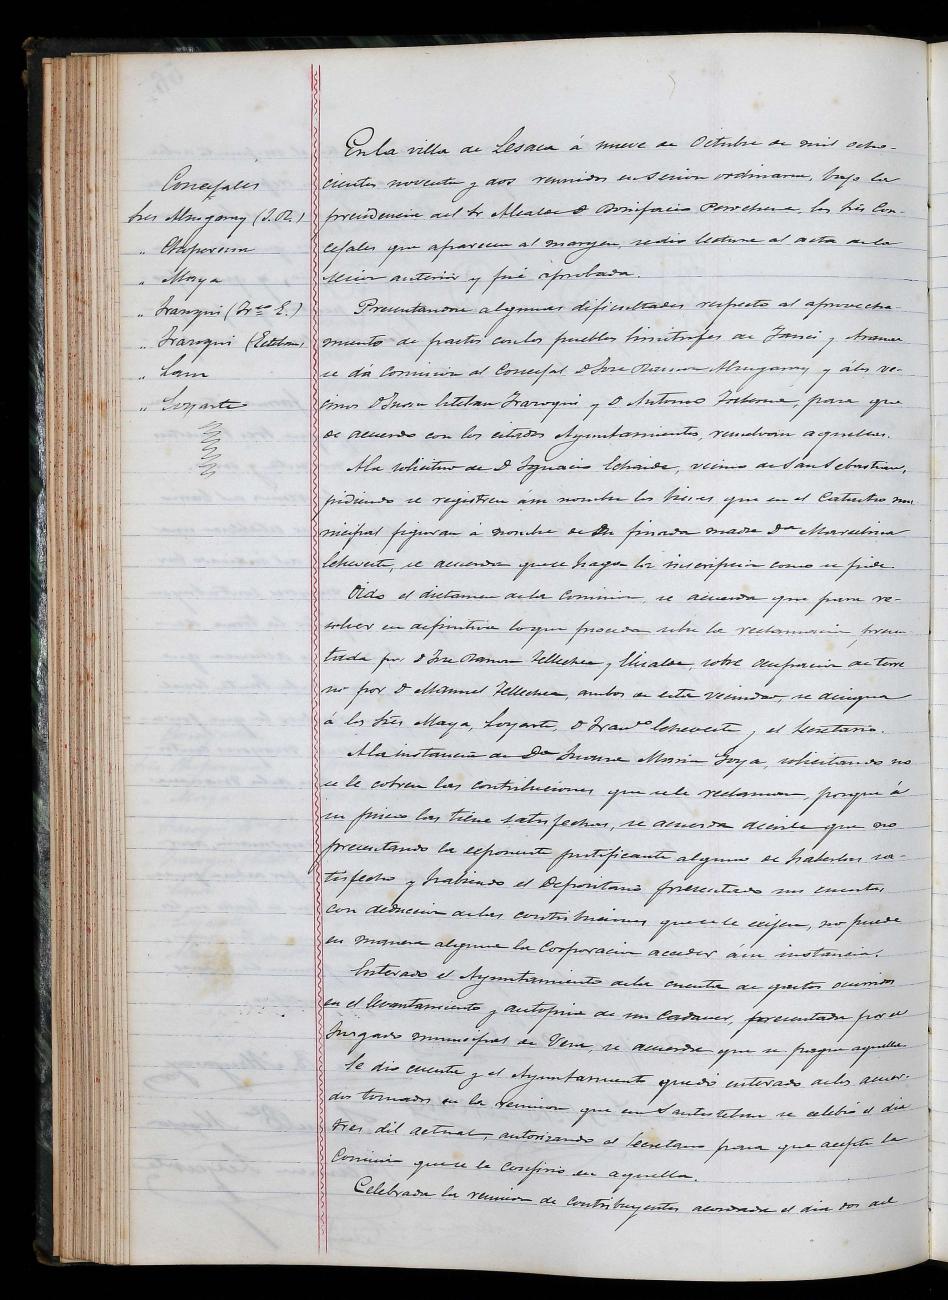 Concejales
Sres Mugaray (J. R.)
" Chaparena
" Maya
" Iraroqui (Frco E.)
" Iraroqui (Esteban)
" Lara
" Loyarte
En la villa de Lesaca á nueve de Octubre de mil ocho-
cientos noventa y dos reunidos en sesion ordinaria, bajo la
presidencia del Sr Alcalde D Bonifacio los Sres Con-
cejales que aparecen al margen, se dio lectura al acta de la
sesion anterior y fué aprobada.
Presentandose algunas dificultades respecto al aprovecha-
miento de pastos con los pueblos limitrofes de Yanci y Aranaz
se dá Comision al Concejal D Jose Ramon y á los ve-
cinos D Juan Esteban Iraroqui y D Antonio para que
de acuerdo con los citados Ayuntamientos, resuelvan aquellas.
A la solicitud de D Ignacio Echaide, vecino de San Sebastian,
pidiendo se registren á su nombre los bienes que en el Catastro mu-
nicipal figuran á nombre de su finada madre Da Marcelina
Echeveste, se acuerda que se haga la inscripcion como se pide.
Oido el dictamen de la Comision, se acuerda que para re-
solver en definitiva lo que proceda sobre la reclamacion presen-
tada por D Jose Ramon Tellechea y Alcalde, sobre ocupacion de terre
no por D Manuel Tellechea, ambos de esta vecindad, se designa
á los Sres Maya, Loyarte, D Franco Echeveste y el Secretario.
A la instancia de Da Juana Maria Goya, solicitando no
se le cobren las contribuciones que se le reclaman, porque á
su juicio las tiene satisfechas, se acuerda decirle que no
presentando la esponente justificante alguno de haberlas sa-
tisfecho y habiendo el Depositario presentado sus cuentas
con deduccion de las contribuciones que se le exijen, no puede
en manera alguna la Corporacion acceder á su instancia.
Enterado el Ayuntamiento de la cuenta de gastos ocurridos
en el levantamiento y autopsia de un Cadaver, presentada por el
Juzgado municipal de Vera, se acuerda que se pague aquella.
Se dio cuenta y el Ayuntamiento quedó enterado de los acuer-
dos tomados en la reunion que en Santesteban se celebró el dia
tres del actual, autorizando al Secretario para que acepte la
Comision que se le confirió en aquella.
Celebrada la reunion de Contribuyentes acordada el dia dos del